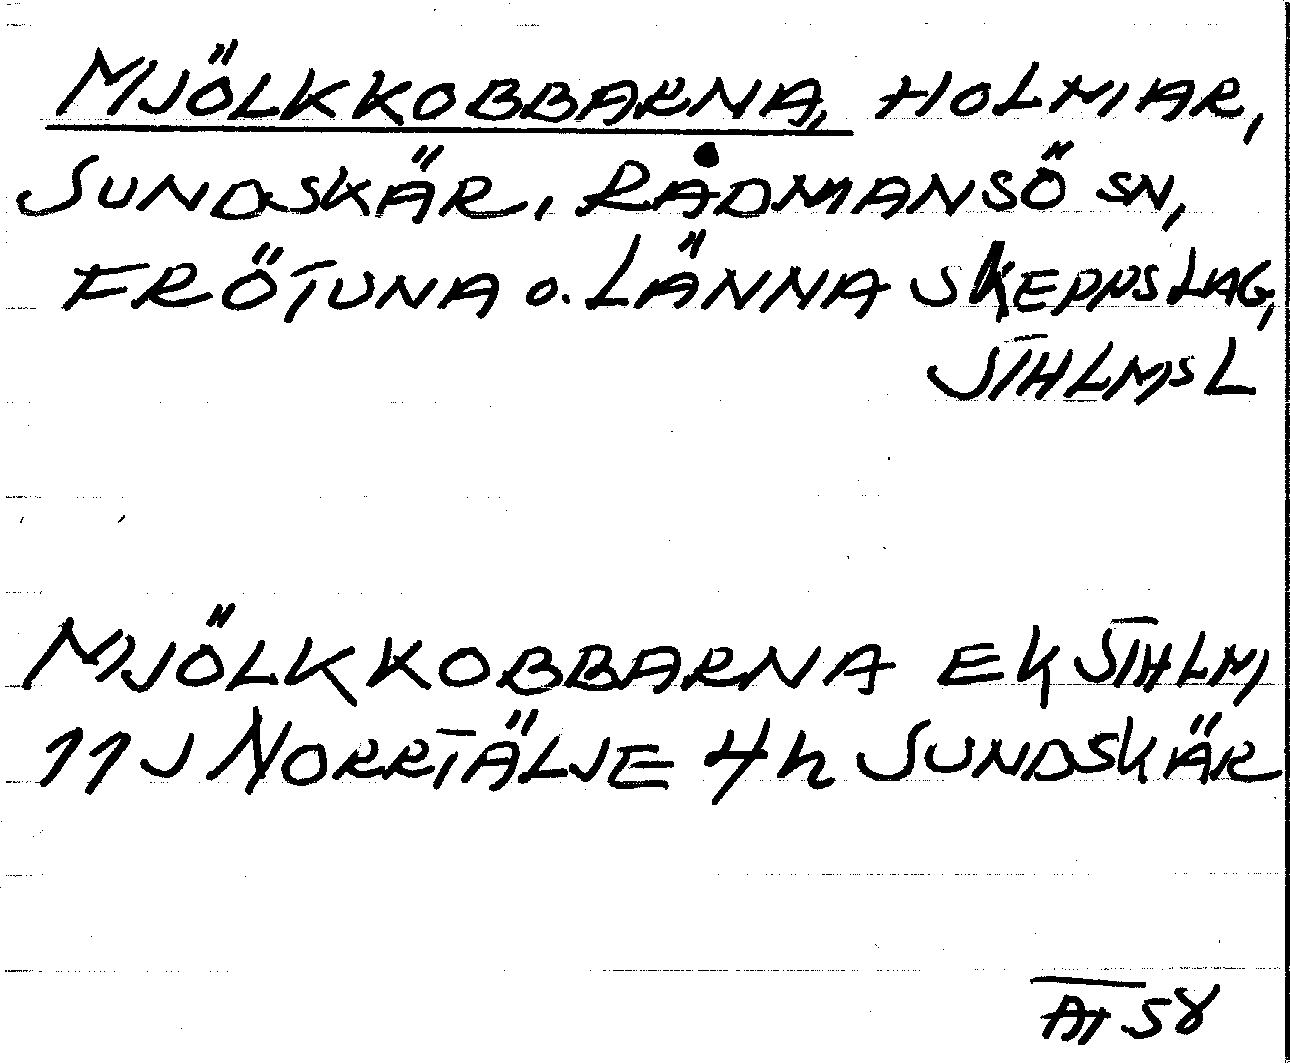 MJÖLKKOBBARNA, HOLMAR,
SUNDSKÄR, RÅDMANSÖ SN,
FRÖTUNA o. LÄNNA SKEPPSLAG,
STHLMS L
MJÖLKKOBBARNA EK STHLM
11J NORRTÄLJE 4h SUNDSKÄR
AT 58